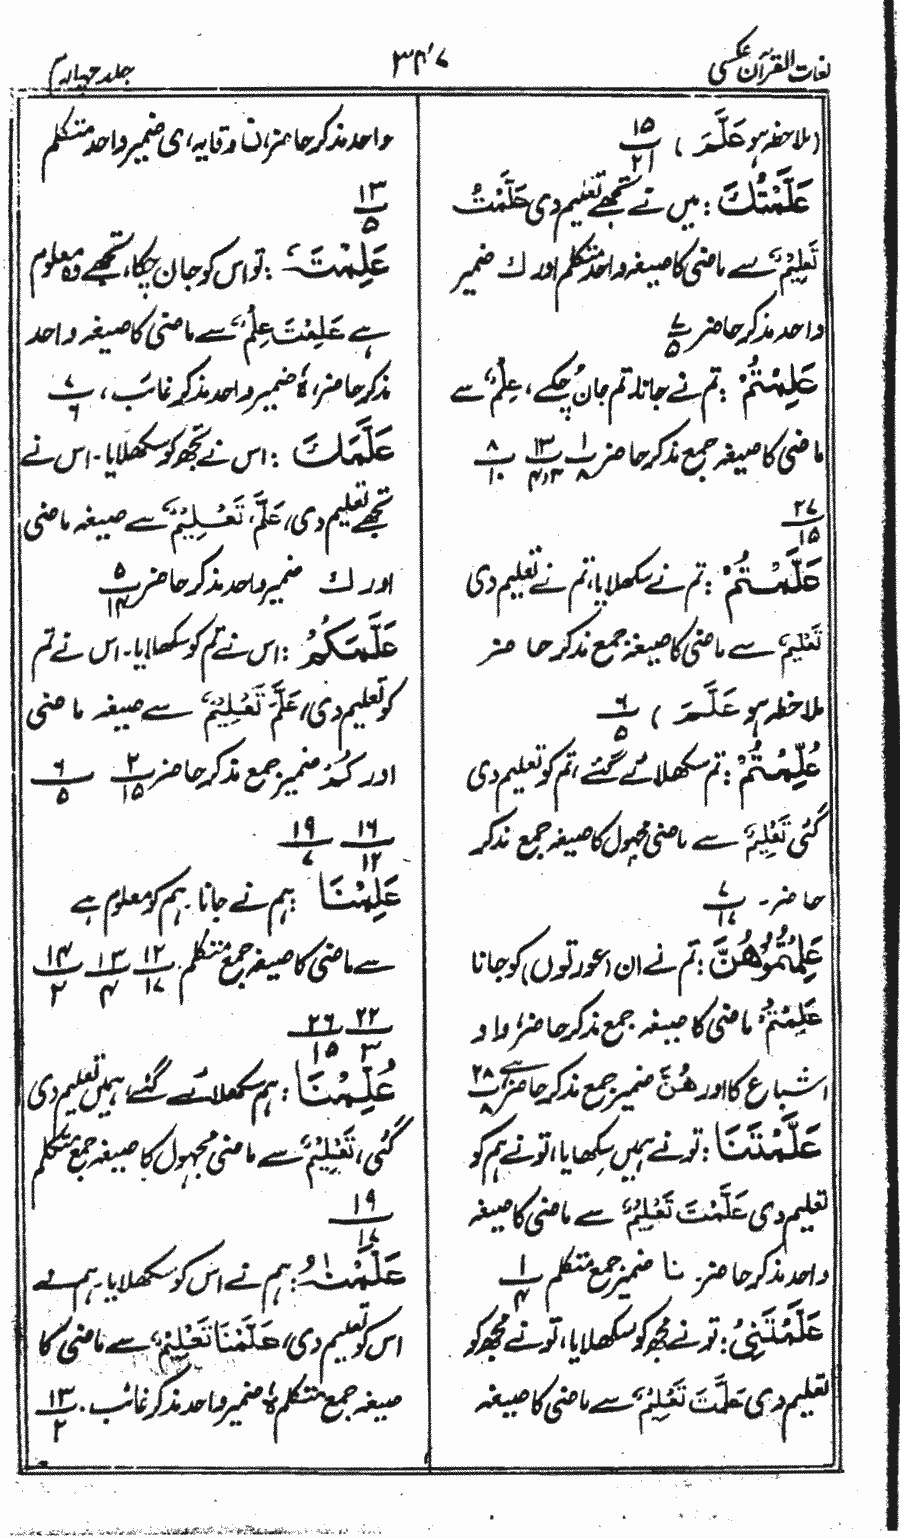 لغات القرآن عکسی
۳۴۷
جلد چہارم
(ملاحظہ ہو عَلَّمَ) ۱۵/۲۱
عَلَّمْتُكَ : میں نے تجھے تعلیم دی عَلَّمْتُ
تَعْلِیْمٌ سے ماضی کا صیغہ واحد متکلم اور ك ضمیر
واحد مذکر حاضر ۷/۵
عَلِمْتُمْ : تم نے جانا، تم جان چکے، عِلْمٌ سے
ماضی کا صیغہ جمع مذکر حاضر ۱/۸ ۱۲/۳،۴ ۸/۱۰
۲۷/۱۵
عَلَّمْتُمْ : تم نے سکھلایا، تم نے تعلیم دی
تَعْلِیْمٌ سے ماضی کا صیغہ جمع مذکر حاضر
ملاحظہ ہو عَلَّمَ) ۶/۵
عُلِّمْتُمْ : تم سکھلائے گئے، تم کو تعلیم دی
گئی تَعْلِیْمٌ سے ماضی مجہول کا صیغہ جمع مذکر
حاضر۔ ۷/۱۷
عَلِمْتُمُوْهُنَّ : تم نے ان (عورتوں) کو جانا
عَلِمْتُمْ ماضی کا صیغہ جمع مذکر حاضر، واو
اشباع کا اور هُنَّ ضمیر جمع مذکر حاضر ہے ۲۸/۸
عَلَّمْتَنَا : تو نے ہمیں سکھایا، تو نے ہم کو
تعلیم دی عَلَّمْتَ تَعْلِیْمٌ سے ماضی کا صیغہ
واحد مذکر حاضر۔ نا ضمیر جمع متکلم ۱/۴
عَلَّمْتَنِیْ : تو نے مجھ کو سکھلایا، تو نے مجھ کو
تعلیم دی عَلَّمْتَ تَعْلِیْمٌ سے ماضی کا صیغہ
واحد مذکر حاضر، ن وقایہ، ی ضمیر واحد متکلم
۱۳/۵
عَلِمْتَهٗ : تو اس کو جان چکا، تجھے وہ معلوم
ہے عَلِمْتَ عِلْمٌ سے ماضی کا صیغہ واحد
مذکر حاضر، هٗ ضمیر واحد مذکر غائب، ۷/۶
عَلَّمَكَ : اس نے تجھ کو سکھلایا۔ اس نے
تجھے تعلیم دی، عَلَّمَ، تَعْلِیْمٌ سے صیغہ ماضی
اور ك ضمیر واحد مذکر حاضر ۵/۱۴
عَلَّمَكُمْ : اس نے تم کو سکھلایا۔ اس نے تم
کو تعلیم دی، عَلَّمَ تَعْلِیْمٌ سے صیغہ ماضی
اور كُمْ ضمیر جمع مذکر حاضر ۲/۱۵ ۶/۵
۱۶/۱۲ ۱۹/۷
عَلِمْنَا : ہم نے جانا۔ ہم کو معلوم ہے
سے ماضی کا صیغہ جمع متکلم ۱۲/۱۷ ۱۳/۴ ۱۴/۲
۲۲/۳ ۲۶/۱۵
عُلِّمْنَا : ہم سکھلائے گئے، ہمیں تعلیم دی
گئی، تَعْلِیْمٌ سے ماضی مجہول کا صیغہ جمع متکلم
۱۹/۱۷
عَلَّمْنَاهُ : ہم نے اس کو سکھلایا۔ ہم نے
اس کو تعلیم دی، عَلَّمْنَا تَعْلِیْمٌ سے ماضی کا
صیغہ جمع متکلم هٗ ضمیر واحد مذکر غائب۔ ۱۳/۲